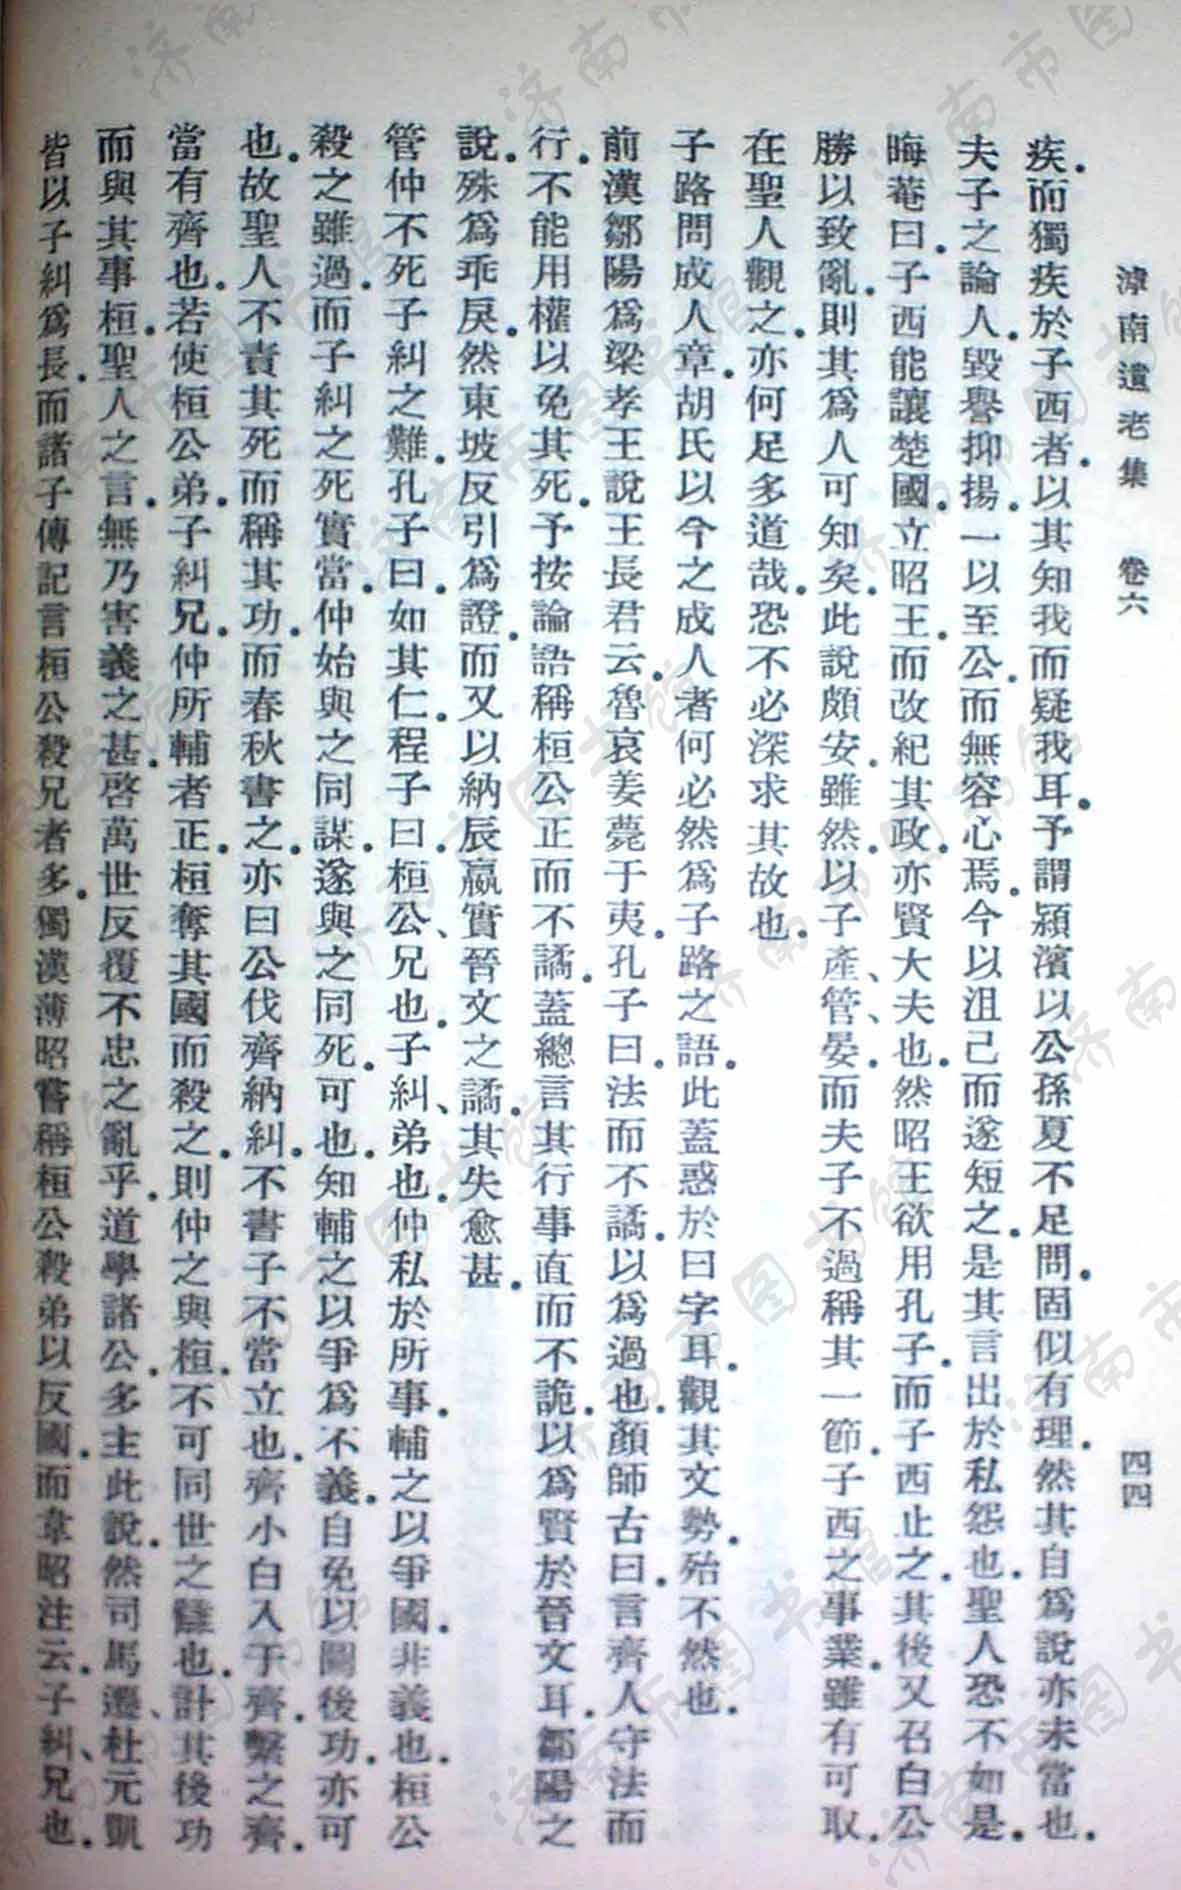 滹南遺老集　卷六　四四
疾.而獨疾於子西者.以其知我而疑我耳.予謂潁濱以公孫夏不足問.固似有理.然其自爲說亦未當也.
夫子之論人.毀譽抑揚.一以至公.而無容心焉.今以沮己而遂短之.是其言出於私怨也.聖人恐不如是.
晦菴曰.子西能讓楚國.立昭王.而改紀其政.亦賢大夫也.然昭王欲用孔子.而子西止之.其後又召白公
勝以致亂.則其爲人可知矣.此說頗安.雖然.以子產、管、晏.而夫子不過稱其一節.子西之事業.雖有可取.
在聖人觀之.亦何足多道哉.恐不必深求其故也.
子路問成人章.胡氏以今之成人者何必然爲子路之語.此蓋惑於曰字耳.觀其文勢.殆不然也.
前漢鄒陽爲梁孝王說王長君云.魯哀姜薨于夷.孔子曰.法而不譎.以爲過也.顏師古曰.言齊人守法而
行.不能用權以免其死.予按論語稱桓公正而不譎.蓋總言其行事直而不詭.以爲賢於晉文耳.鄒陽之
說.殊爲乖戾.然東坡反引爲證.而又以納辰嬴實晉文之譎.其失愈甚.
管仲不死子糾之難.孔子曰.如其仁.程子曰.桓公、兄也.子糾、弟也.仲私於所事.輔之以爭國.非義也.桓公
殺之雖過.而子糾之死實當.仲始與之同謀.遂與之同死.可也.知輔之以爭爲不義.自免以圖後功.亦可
也.故聖人不責其死而稱其功.而春秋書之.亦曰公伐齊納糾.不書子.不當立也.齊小白入于齊.繫之齊.
當有齊也.若使桓公弟.子糾兄.仲所輔者正.桓奪其國而殺之.則仲之與桓.不可同世之讎也.計其後功
而與其事桓.聖人之言.無乃害義之甚.啓萬世反覆不忠之亂乎.道學諸公.多主此說.然司馬遷、杜元凱
皆以子糾爲長.而諸子傳記言桓公殺兄者多.獨漢薄昭嘗稱桓公殺弟以反國.而韋昭注云.子糾、兄也.